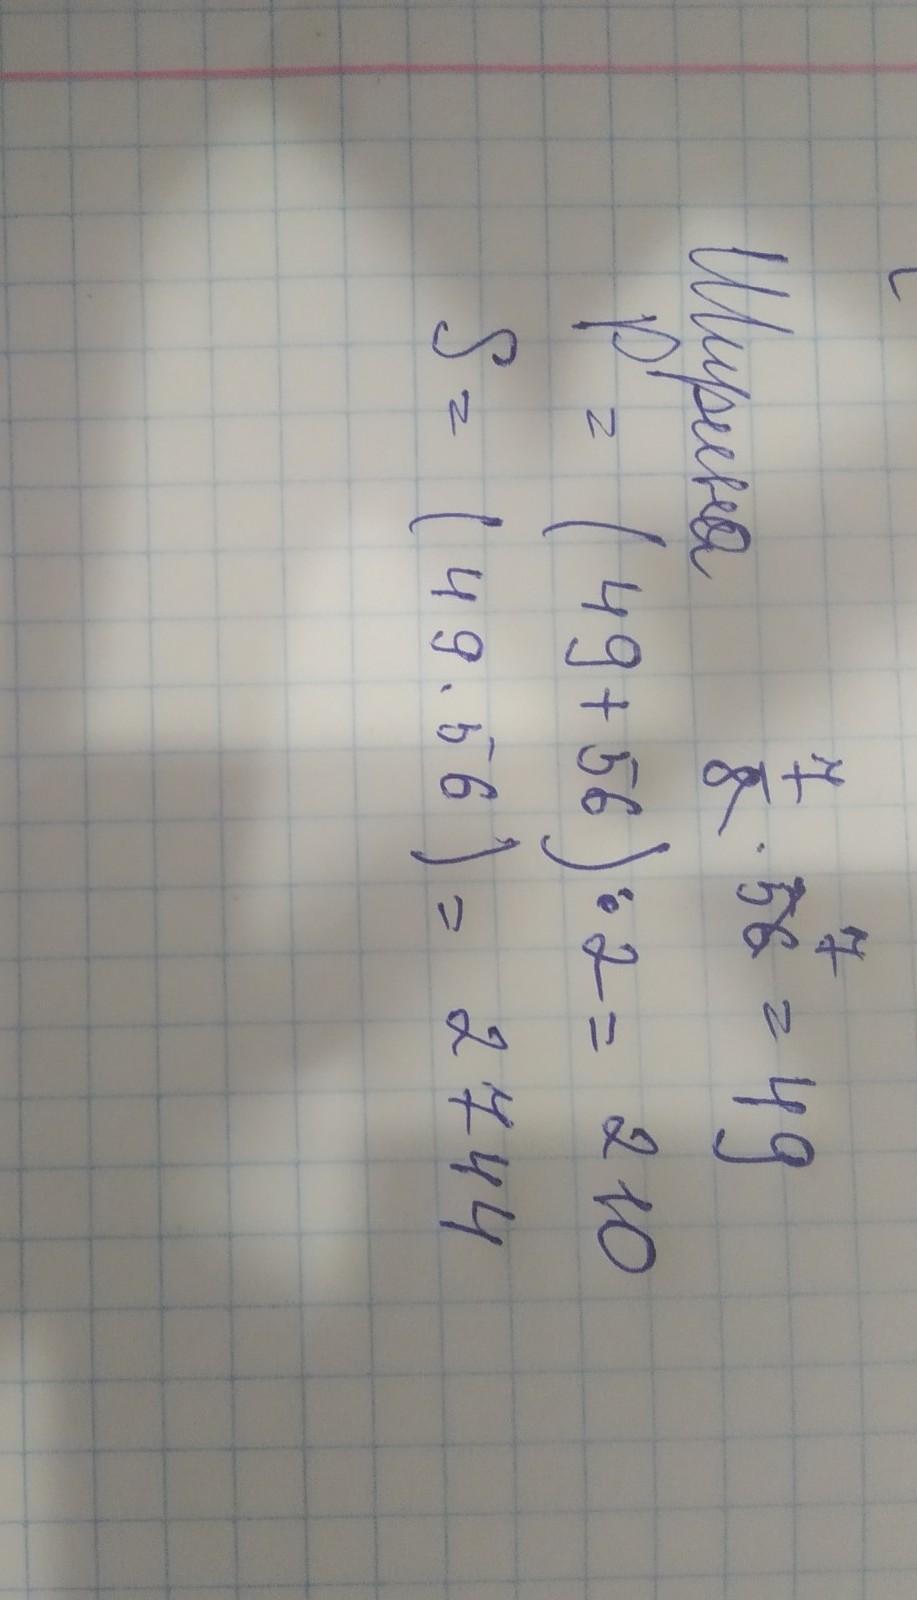 Ширина 7/8 · 56 7 = 49
P = (49+56)·2 = 210
S = (49·56) = 2744